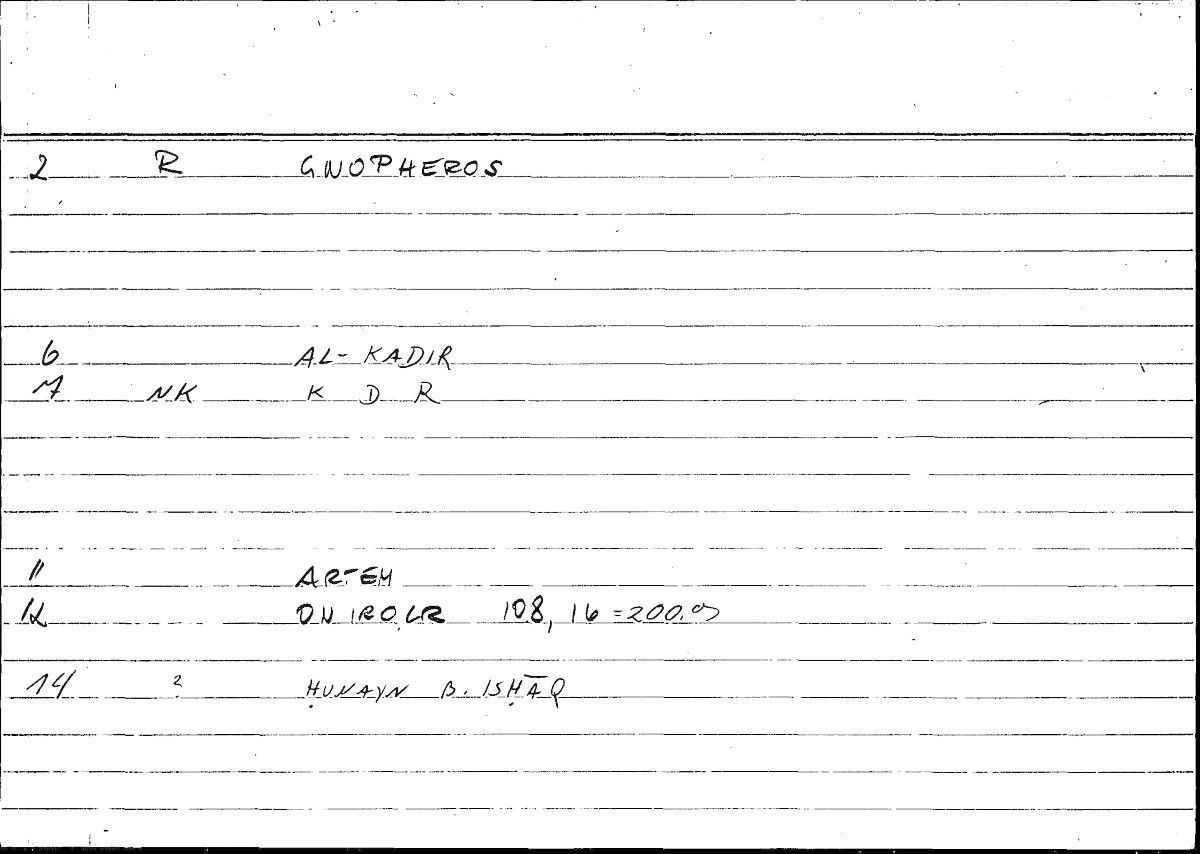 2 R GNOPHEROS
6 AL-KADIR
7 NK K D R
11 ARTEM
12 ONIROCR 108, 16 = 200.9
14 2 ḤUNAYN B. ISḤĀQ